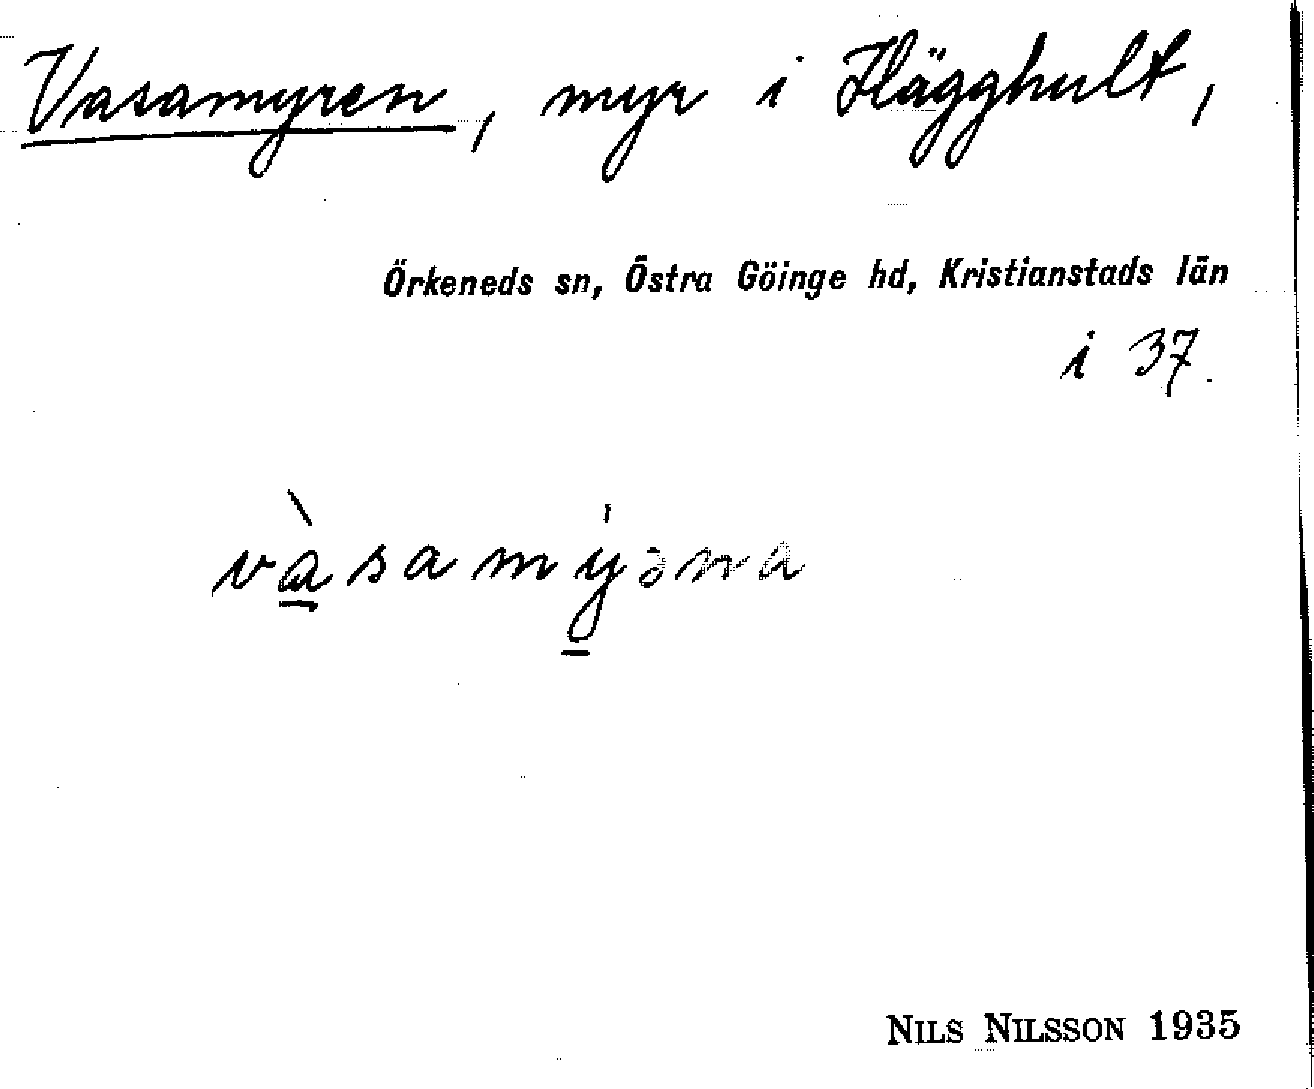 Vasamyren, myr i Hägghult,
Örkeneds sn, Östra Göinge hd, Kristianstads län
i 37.
và̱samý̱əna
NILS NILSSON 1935